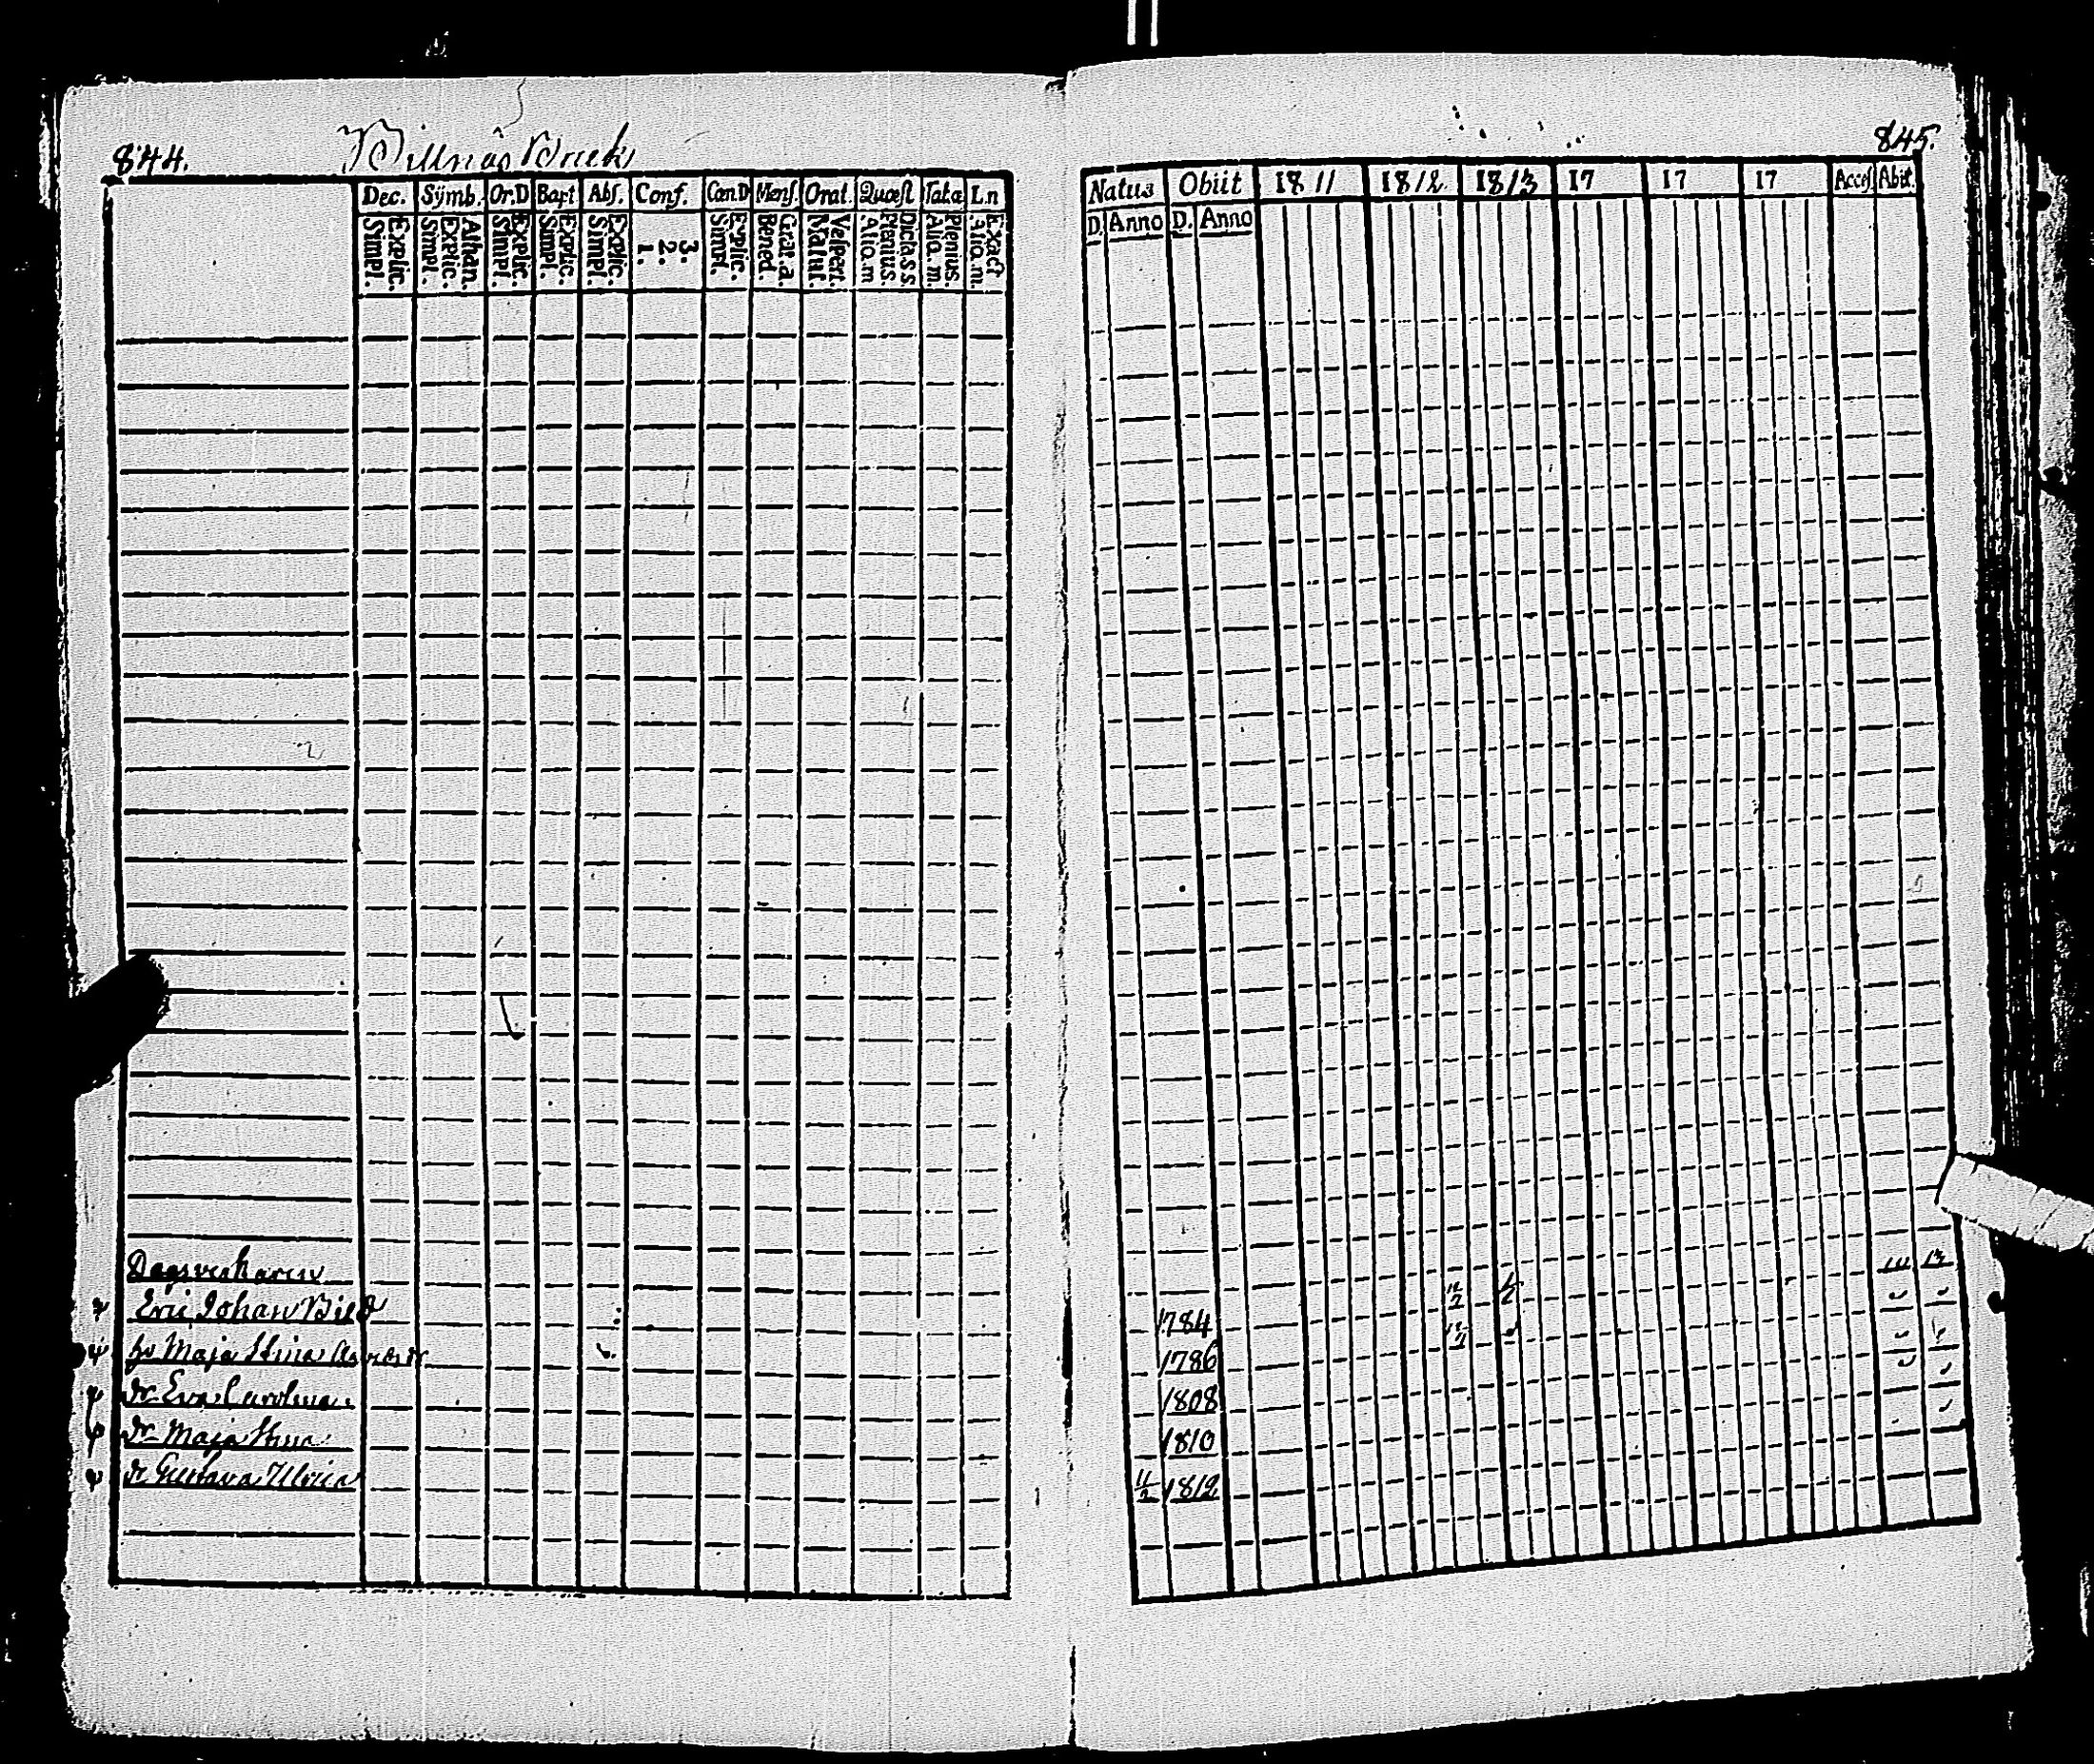 844.
Billnäs Bruk
Dec. Symb. Or.D Bapt Abs. Conf. Can.D Mens. Orat. Quæst Tab.æ L.n
Explic. Simpl. Athan. Explic. Simpl. Explic. Simpl. Explic. Simpl. Explic. Simpl. 3. 2. 1. Explic. Simpl. Grat.a. Bened. Vesper. Matut. Dicta.s.s. Plenius. Aliq.m Plenius. Aliq.m. Exact Aliq.m.
Eric Johan Bild
hu Maja Stina
dr Eva Carolina
dr Maja Stina
dr Gustava Ulrica
845.
Natus Obiit 1811 1812 1813 17 17 17 Acces Abiit
D. Anno D. Anno
1784
1786
1808
1810
11/2 1812